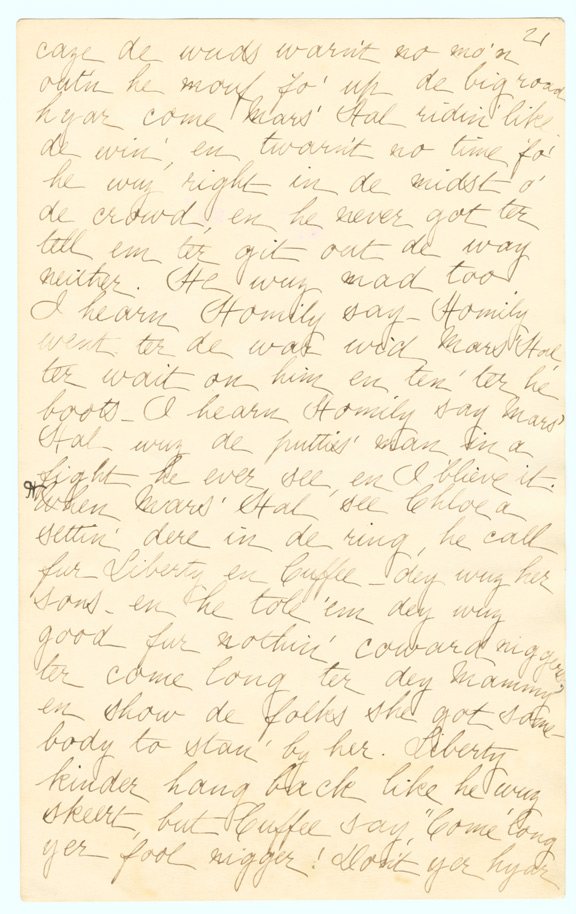 21
caze de wuds warn't no mo'n
outn he mouf fo' up de big road
hyar come Mars' Hal ridin' like
de win', en twarn't no time fo'
he wuz right in de midst o'
de crowd, en he never got ter
tell em ter git out de way
neither. He wuz mad too.
I hearn Homily say - Homily
went ter de war wid Mars' Hal
ter wait on him en ten' ter he
boots - I hearn Homily say Mars'
Hal wuz de putties' man in a
fight he ever see, en I b'lieve it.
When Mars' Hal see Chloe a
settin' dere in de ring, he call
fur Liberty en Cuffee - dey wuz her
sons - en he tole 'em dey wuz
good fur nothin' coward niggers
ter come long ter dey Mammy
en show de folks she got some-
body to stan' by her. Liberty
kinder hang back like he wuz
skeert, but Cuffee say, "Come 'long
yer fool nigger! Don't yer hyar